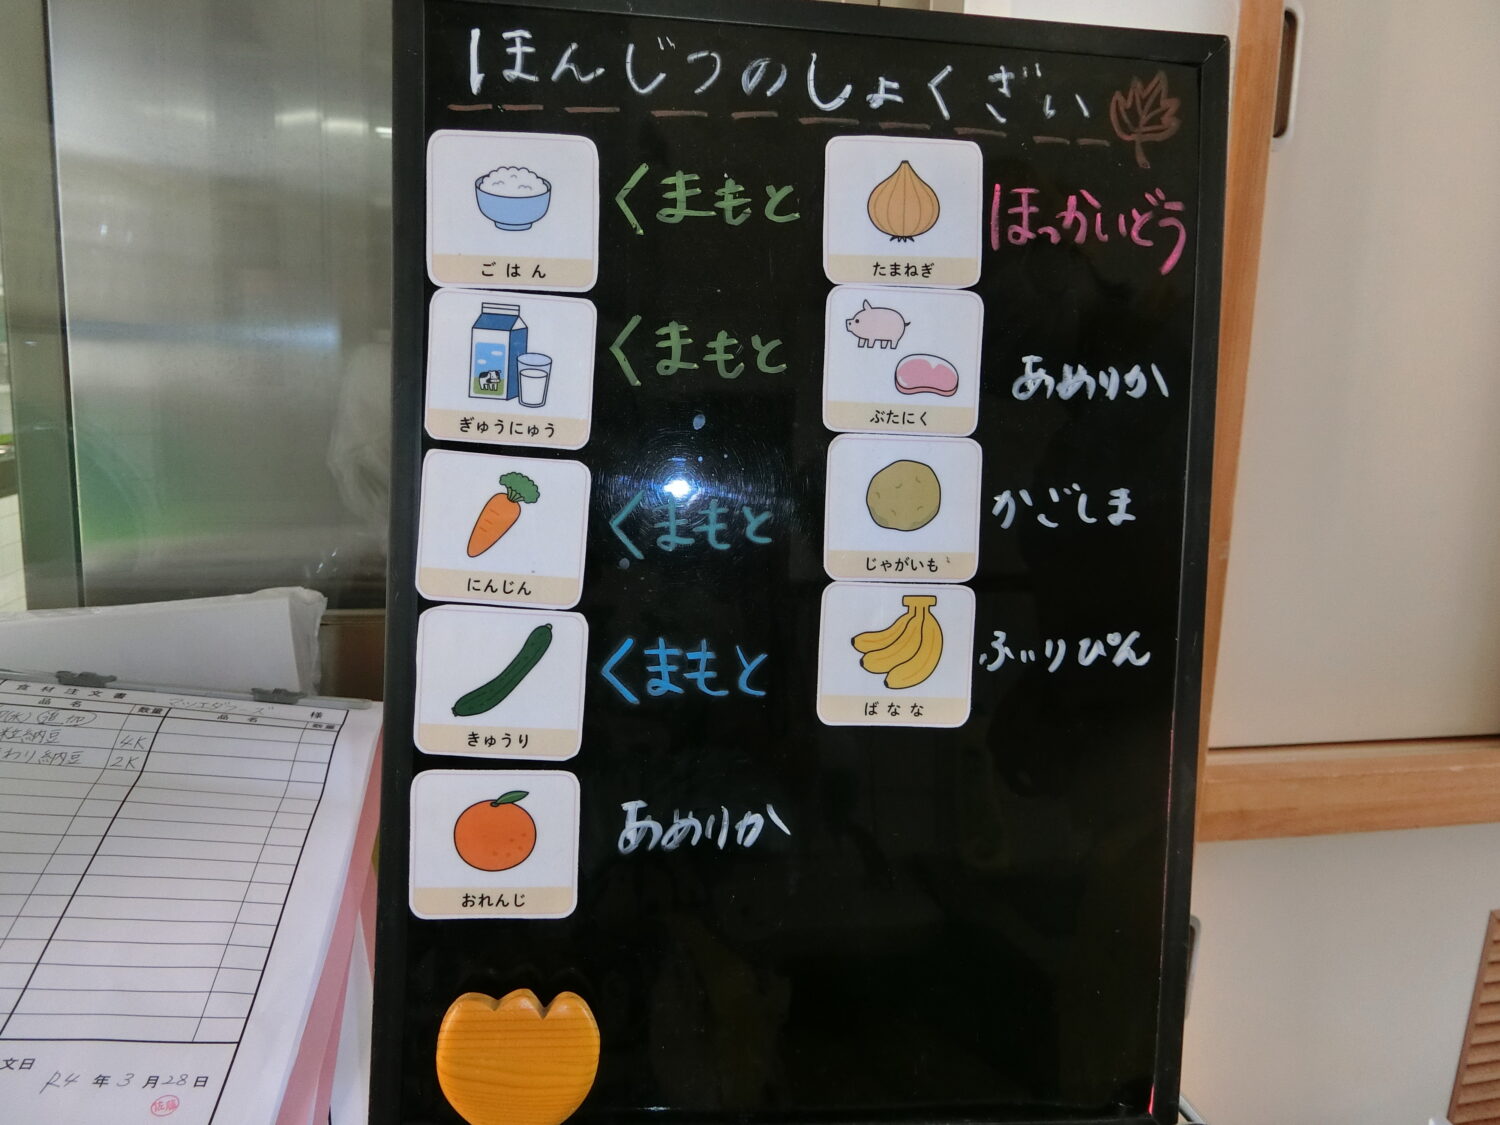 ほんじつのしょくざい
ごはん
くまもと
ぎゅうにゅう
くまもと
にんじん
くまもと
きゅうり
くまもと
おれんじ
あめりか
たまねぎ
ほっかいどう
ぶたにく
あめりか
じゃがいも
かごしま
ばなな
ふぃりぴん
食材注文書
様
品名
数量
品名
数量
(追加)
粒納豆
4K
わり納豆
2K
文日
R4年3月28日
佐藤